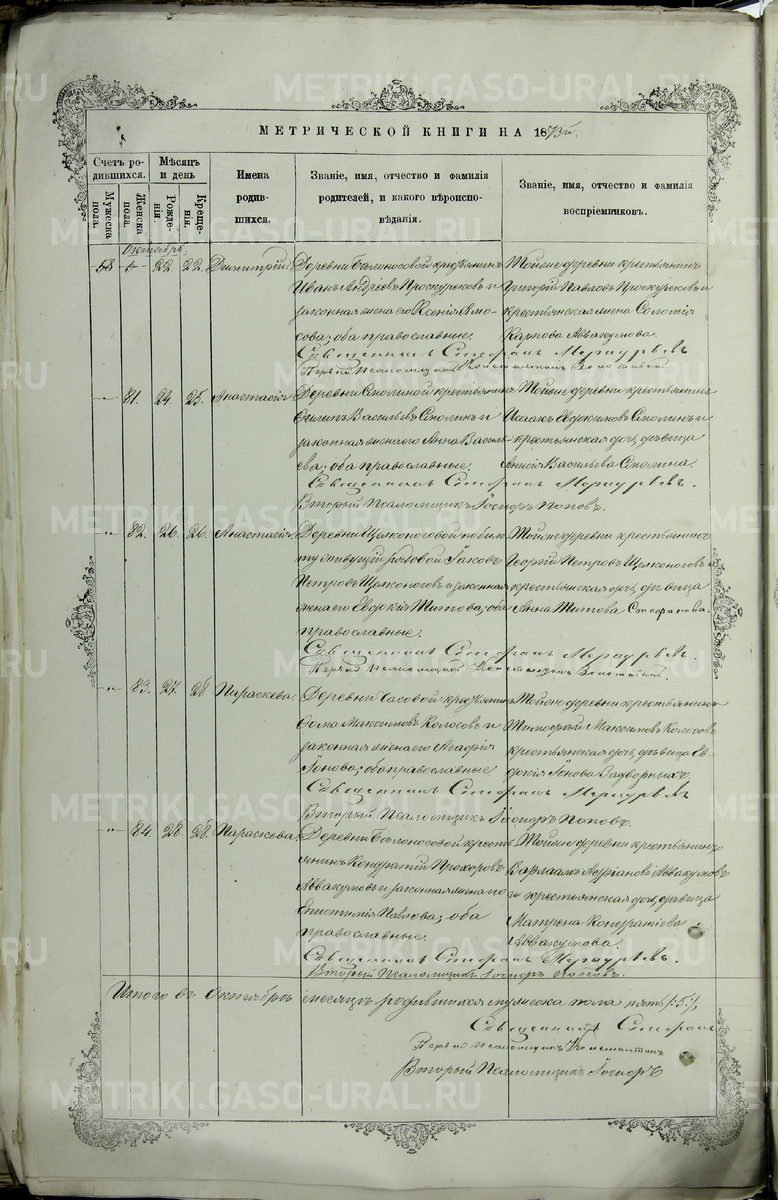 МЕТРИЧЕСКОЙ КНИГИ НА 1873й.
Счетъ ро-
дившихся.
Мужеска
пола.
Женска
пола.
Мѣсяцъ
и день
Рожде-
нія.
Креще-
нія.
Имена
родив-
шихся.
Званіе, имя, отчество и фамилія
родителей, и какого вѣроиспо-
вѣданія.
Званіе, имя, отчество и фамилія
воспріемниковъ.
Октябрь.
58 - 22 22. Димитрій.
Деревни Бѣлоносовой крестьянинъ
Иванъ Андреевъ Проскуряковъ и
законная жена его Ксенія
оба православные.
Тойже деревни крестьянинъ
Григорій Павловъ Проскуряковъ и
крестьянская жена Соломія
Карпова Аввакумова.
Священникъ Стефанъ Меркурьевъ
Первый Псаломщикъ Константинъ
-„- 81. 24. 25. Анастасія.
Деревни крестьянинъ
Филипъ Васильевъ и
законная жена его Анна Василь-
ева; оба православные.
Тойже деревни крестьянинъ
Исаакъ Евдокимовъ и
крестьянская дочь, дѣвица
Анисія Васильева
Священникъ Стефанъ Меркурьевъ.
Вторый Псаломщикъ Іосифъ Поповъ.
-„- 82. 26. 26. Анастасія.
Деревни Щелконоговой по биле-
ту живущій рядовой Іаковъ
Петровъ Щелконоговъ и законная
жена его Евдокія Титова; оба
православные.
Тойже деревни крестьянинъ
Георгій Петровъ Щелконоговъ и
крестьянская дочь, дѣвица
Анна Титова Стефанова.
Священникъ Стефанъ Меркурьевъ.
Первый Псаломщикъ Константинъ
-„- 83. 27. 28 Параскева.
Деревни Часовой крестьянинъ
Фома Максимовъ Колосовъ и
законная жена его Агафія
Іонова; оба православные
Тойже деревни крестьянинъ
Тимофей Максимовъ Колосовъ
крестьянская дочь, дѣвица Ев-
докія Іонова Задворныхъ
Священникъ Стефанъ Меркурьевъ
Вторый Псаломщикъ Іосифъ Поповъ.
-„- 84. 28. 28. Параскева.
Деревни Бѣлоносовой кресть-
янинъ Кондратій Прохоровъ
Аввакумовъ и законная жена его
Епистимія Павлова; оба
православные.
Тойже деревни крестьянинъ
Варлаамъ Адріановъ Аввакумовъ
и крестьянская дочь, дѣвица
Матрена Кондратіева
Аввакумова.
Священникъ Стефанъ Меркурьевъ.
Вторый Псаломщикъ Іосифъ Поповъ.
Итого въ Октябрѣ мѣсяцѣ родившихся мужеска пола пять /:5:/,
Священникъ Стефанъ
Первый Псаломщикъ Константинъ
Вторый Псаломщикъ Іосифъ
METRIKI.GASO-URAL.RU